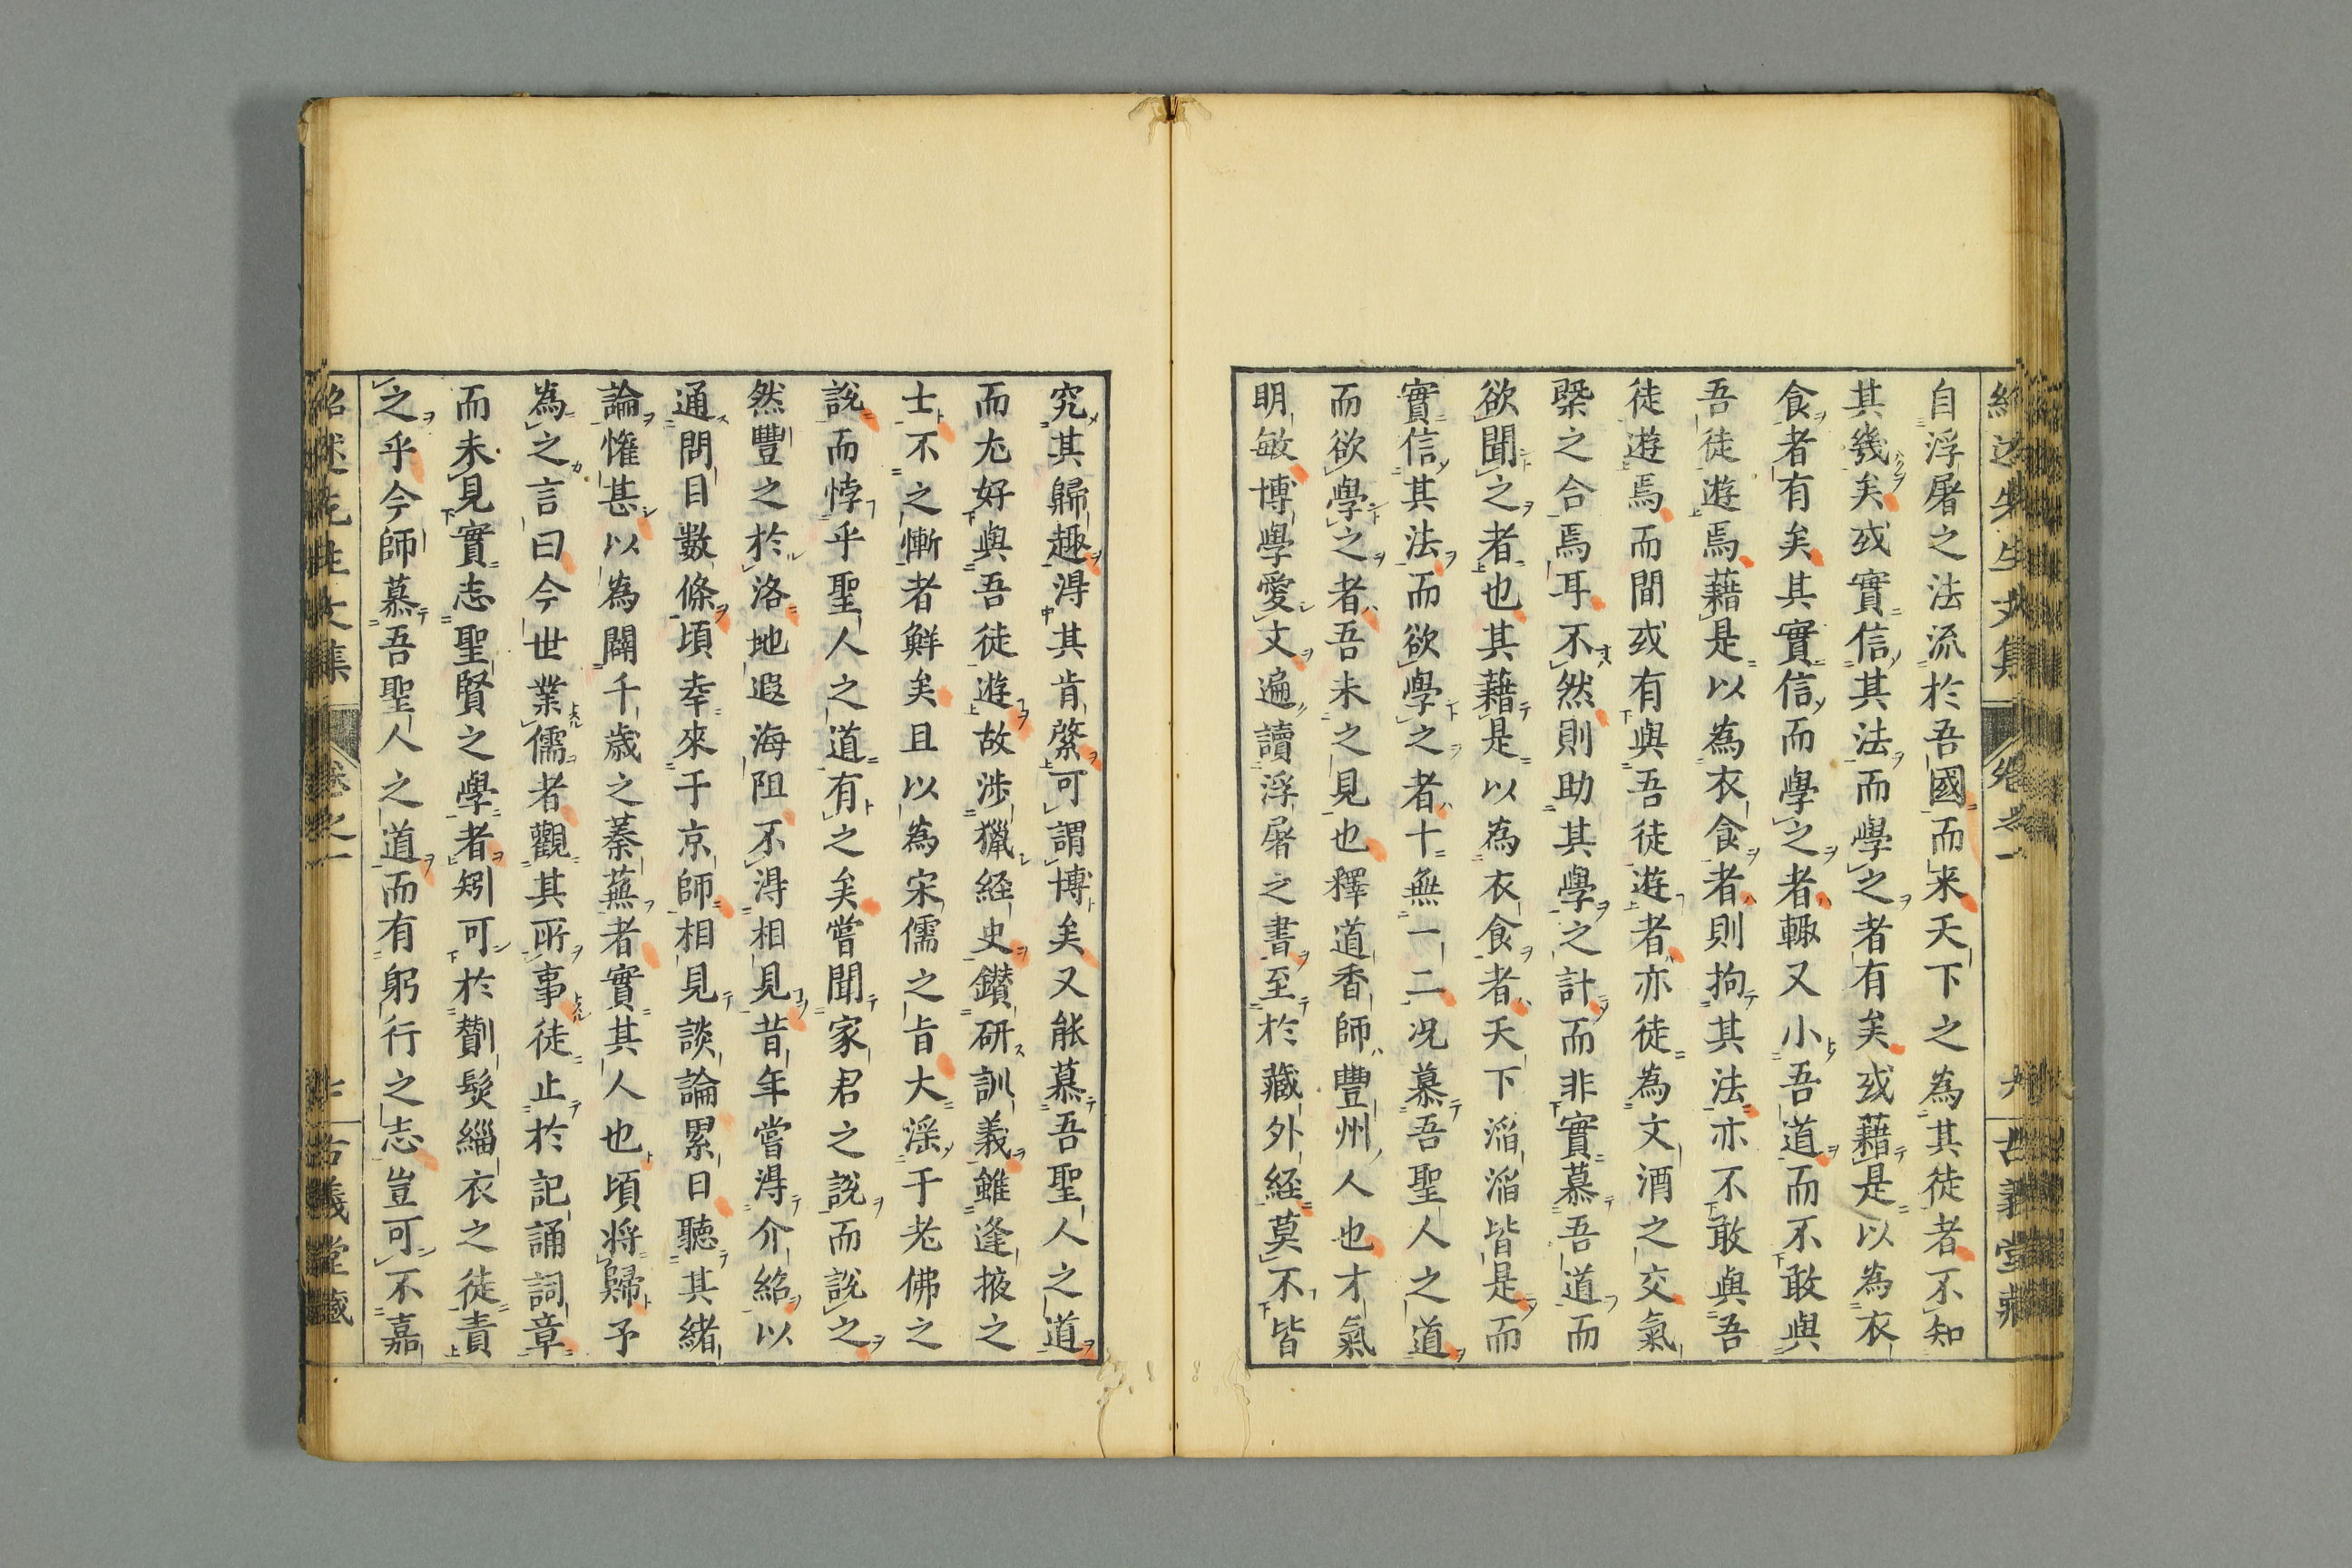 紹述先生文集 卷之一 九 古義堂藏
自浮屠之法流於吾國而来天下之為其徒者不知
其幾矣或實信其法而學之者有矣或藉是以為衣
食者有矣其實信而學之者輙又小吾道而不敢與
吾徒遊焉藉是以為衣食者則拘其法亦不敢與吾
徒遊焉而間或有與吾徒遊者亦徒為文酒之交氣
槩之合焉耳不然則助其學之計而非實慕吾道而
欲聞之者也其藉是以為衣食者天下滔滔皆是而
實信其法而欲學之者十無一二况慕吾聖人之道
而欲學之者吾未之見也釋道香師豐州人也才氣
明敏博學愛文遍讀浮屠之書至於藏外経莫不皆
究其歸趣得其肯綮可謂博矣又能慕吾聖人之道
而尤好與吾徒遊故涉獵経史鑚研訓義雖逢掖之
士不之慚者鮮矣且以為宋儒之旨大滛于老佛之
說而悖乎聖人之道有之矣嘗聞家君之說而說之
然豐之於洛地遐海阻不得相見昔年嘗得介紹以
通問目數條頃幸來于京師相見談論累日聽其緒
論惟甚以為闢千歲之蓁蕪者實其人也頃将歸予
為之言曰今世業儒者觀其所事徒止於記誦詞章
而未見實志聖賢之學者矧可於鬀髮緇衣之徒責
之乎今師慕吾聖人之道而有躬行之志豈可不嘉
紹述先生文集 卷之一 古義堂藏